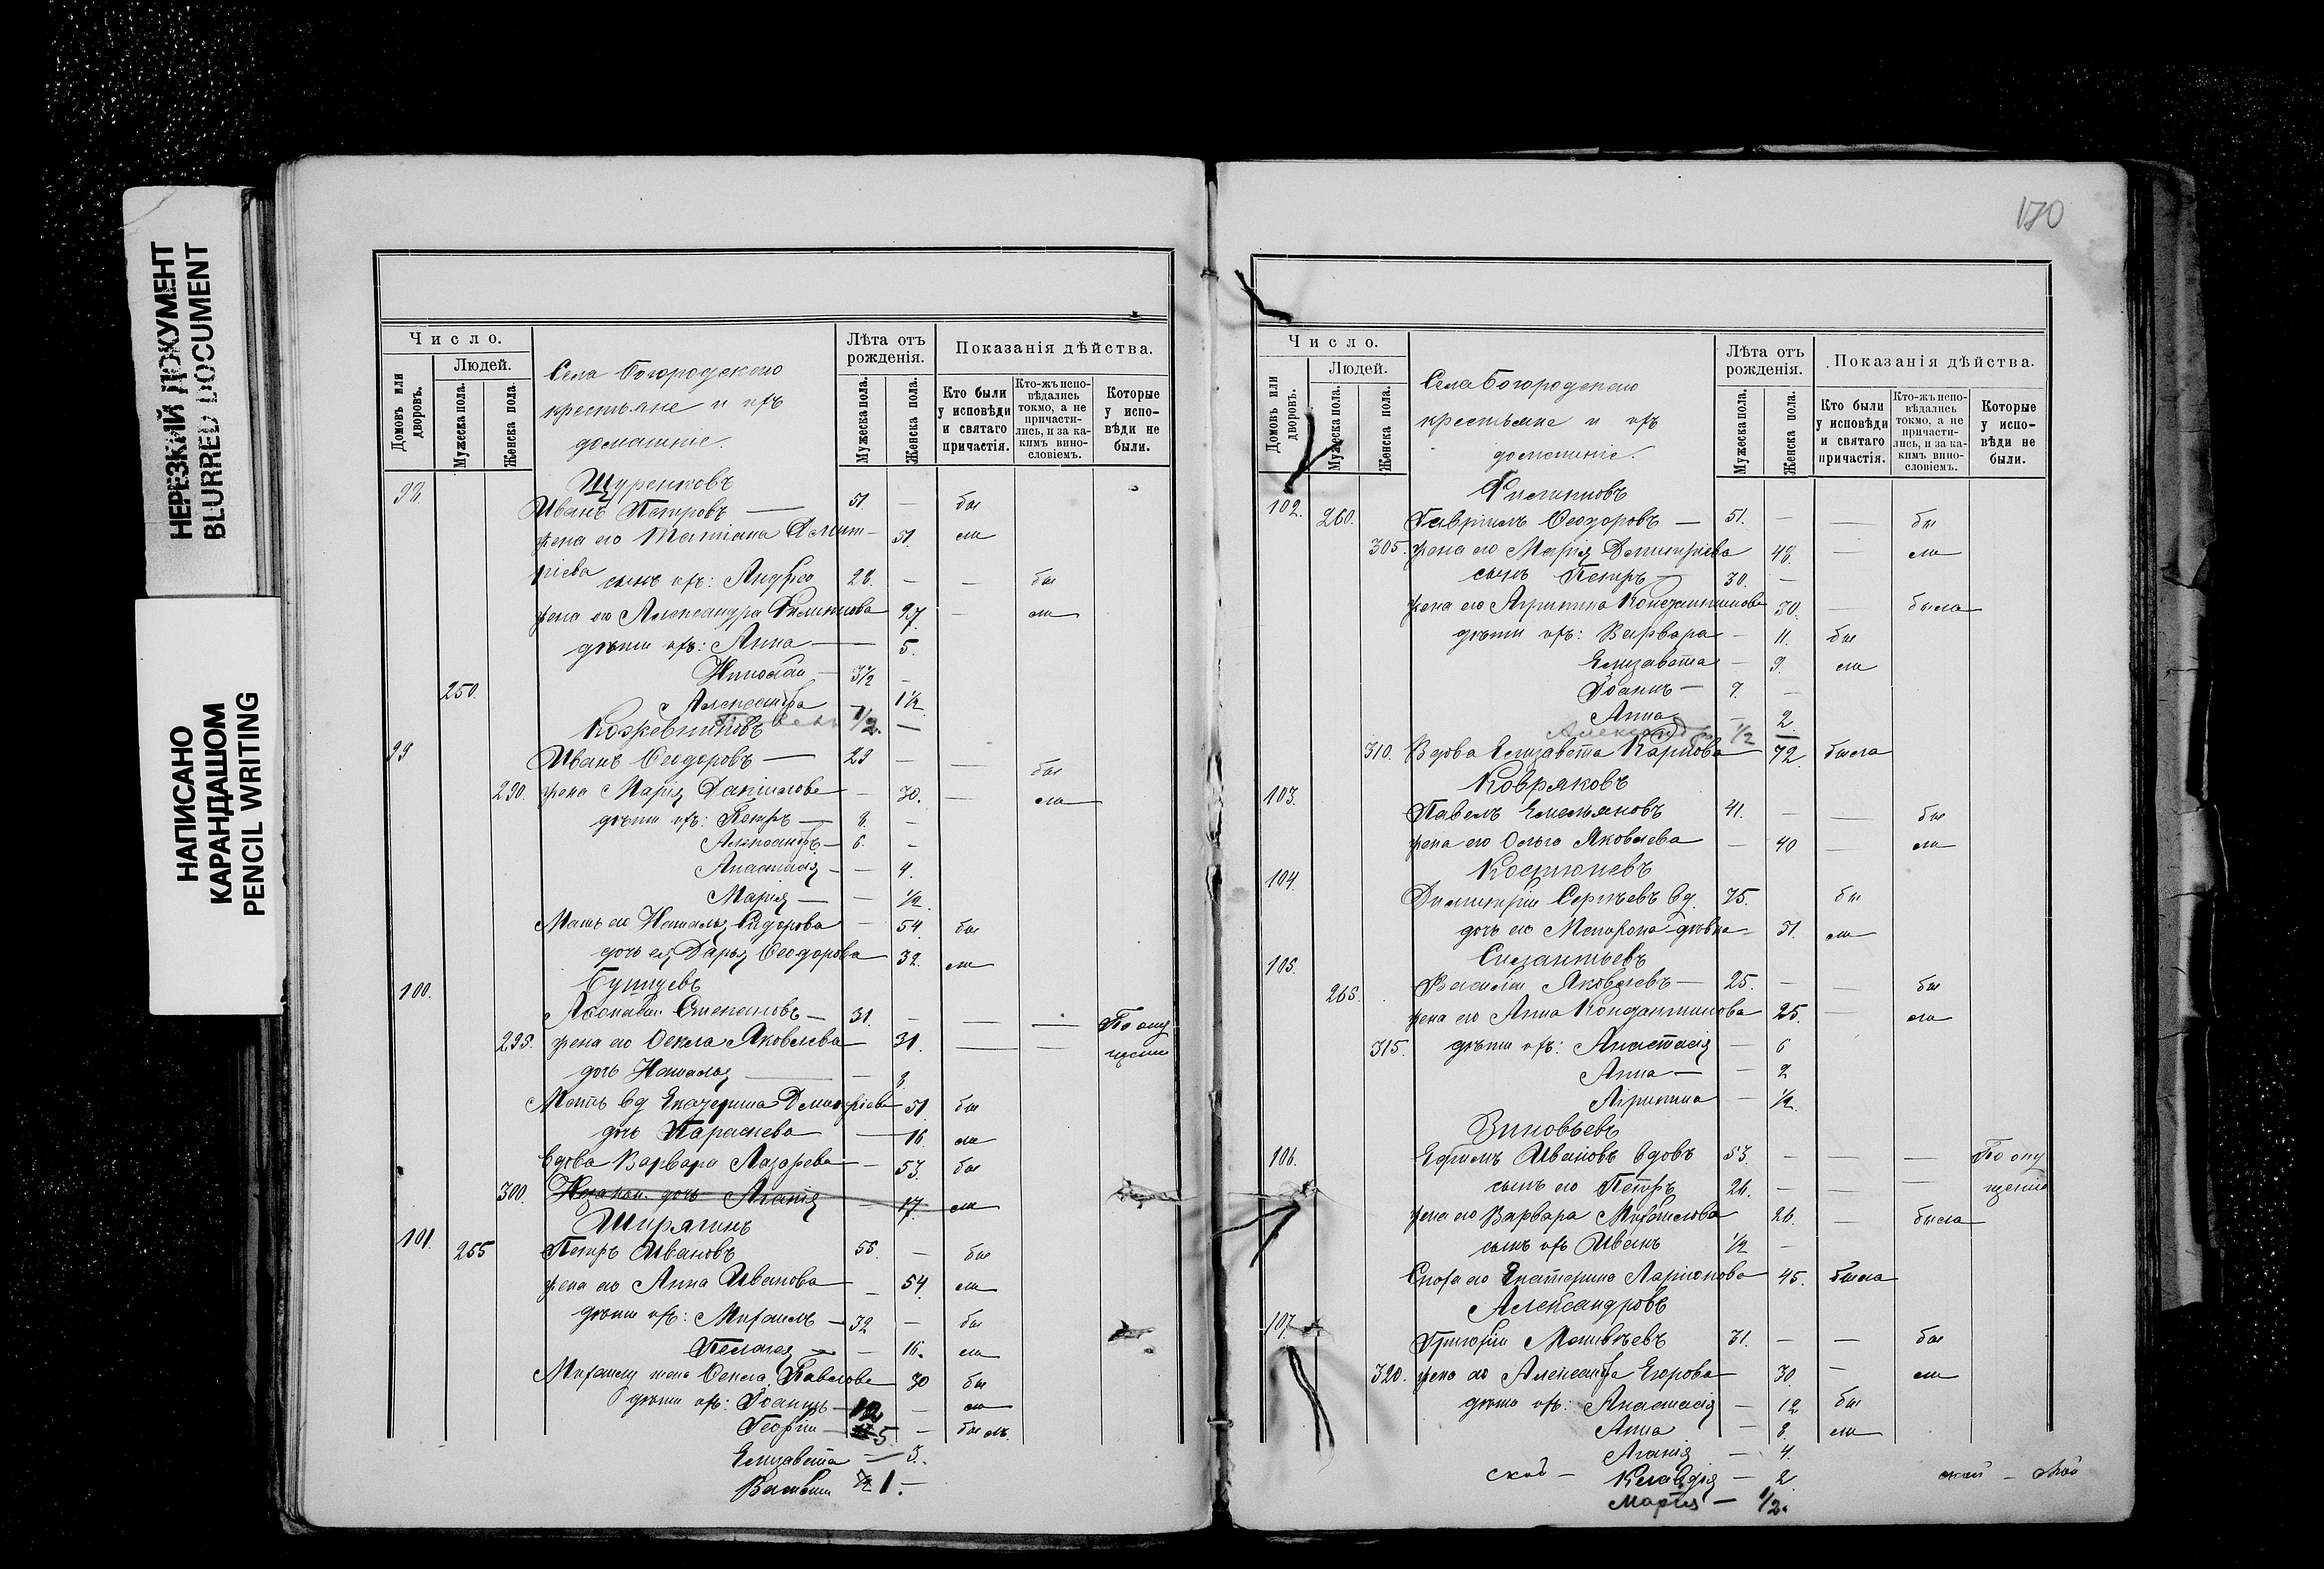 НЕРЕЗКИЙ ДОКУМЕНТ
BLURRED DOCUMENT
НАПИСАНО
КАРАНДАШОМ
PENCIL WRITING
Число.
Домовъ или дворовъ.
Людей.
Мужеска пола.
Женска пола.
Села Богородскаго
крестьяне и ихъ
домашніе.
Лѣта отъ рожденія.
Мужеска пола.
Женска пола.
Показанія дѣйства.
Кто были у исповѣди и святаго причастія.
Кто-жъ исповѣдались токмо, а не причастились, и за каким виnословіемъ.
Которые у исповѣди не были.
98. Щуренковъ
Иванъ Петровъ — 51. — бы
жена его Татіана Димит- 51. ли
ріева
сынъ ихъ: Андрей 28. — — бы
жена его Александра Филиппова 27. — ли
дѣти ихъ: Анна — 5.
Николай — 3 1/2 —
250. Александра 1 1/2
Кожевниковъ 1/2. —
99 Иванъ Ѳеодоровъ — 29 — — бы
290. жена Марія Даніилова — 30. — ли
дѣти ихъ: Петръ — 8. —
Александръ — 6. —
Анастасія — — 4.
Марія — — 1/2.
Мать ея Наталья Сидорова — 54. бы
дочь ея Дарья Ѳеодорова 32. ли
100.
Степановъ — 31. — — — По опу
295. жена его Ѳекла Яковлева 31. — — щенію
дочь Наталья — — 8.
Мать вд Екатерина Димитріева 51 бы
дочь Параскева — 16 ли
вдова Варвара Лазарева — 53. бы
300. Незакон. дочь Агапія — 17. ли
101. Ширягинъ
255 Петръ Ивановъ 55. — бы
жена его Анна Иванова — 54. ли
дѣти ихъ: Михаилъ — 32 — бы
Пелагея — — 16. ли
Михаилу жена Ѳекла Павлова 30 бы
дѣти ихъ: Іоаннъ — — ли
Георгій — 5 — былъ
Елизавета — 3.
Василій 1. —
170
Число.
Домовъ или дворовъ.
Людей.
Мужеска пола.
Женска пола.
Села Богородскаго
крестьяне и ихъ
домашніе.
Лѣта отъ рожденія.
Мужеска пола.
Женска пола.
Показанія дѣйства.
Кто были у исповѣди и святаго причастія.
Кто-жъ исповѣдались токмо, а не причастились, и за какимъ винословіемъ.
Которые у исповѣди не были.
102. Филиповъ
260. Гавріилъ Ѳеодоровъ — 51. — — бы
305. жена его Марія Димитріева 48. — ли
сынъ Петръ 30. —
жена его Агрипина Константинова 30. — была
дѣти ихъ: Варвара — 11. бы
Елизавета — 9. ли
Іоаннъ — 7. —
Анна — 2.
Александръ 1/2 —
310. Вдова Елизавета Карпова 72. была
103. Ковряковъ
Павелъ Емельяновъ 41. — — бы
жена его Ольга Яковлева — 40 — ли
104. Костюневъ
Димитрій Сергѣевъ вд. 75. бы
дочь его дѣвка 31. ли
105. Силантьевъ
265. Василій Яковлевъ — 25. — — бы
жена его Анна Константинова 25. — ли
315. дѣти ихъ: Анастасія — 6
Анна — — 2
Агрипина — 1/2.
Зиновьевъ
106. Ефимъ Ивановъ вдовъ 53. — — — По опу
сынъ его Петръ 26. — — — щенію
жена его Варвара Михаилова 26. — была
сынъ ихъ Иванъ 1/2 —
Сноха его Екатерина Ларіонова 45. была
Александровъ
107. Григорій Матвѣевъ 31. — — бы
320. жена его Александра Егорова 30. — ли
дѣти ихъ: Анастасія — 12 бы
Анна — 8. ли
Агапія — 4.
Клавдія — 2.
Марія — 1/2.